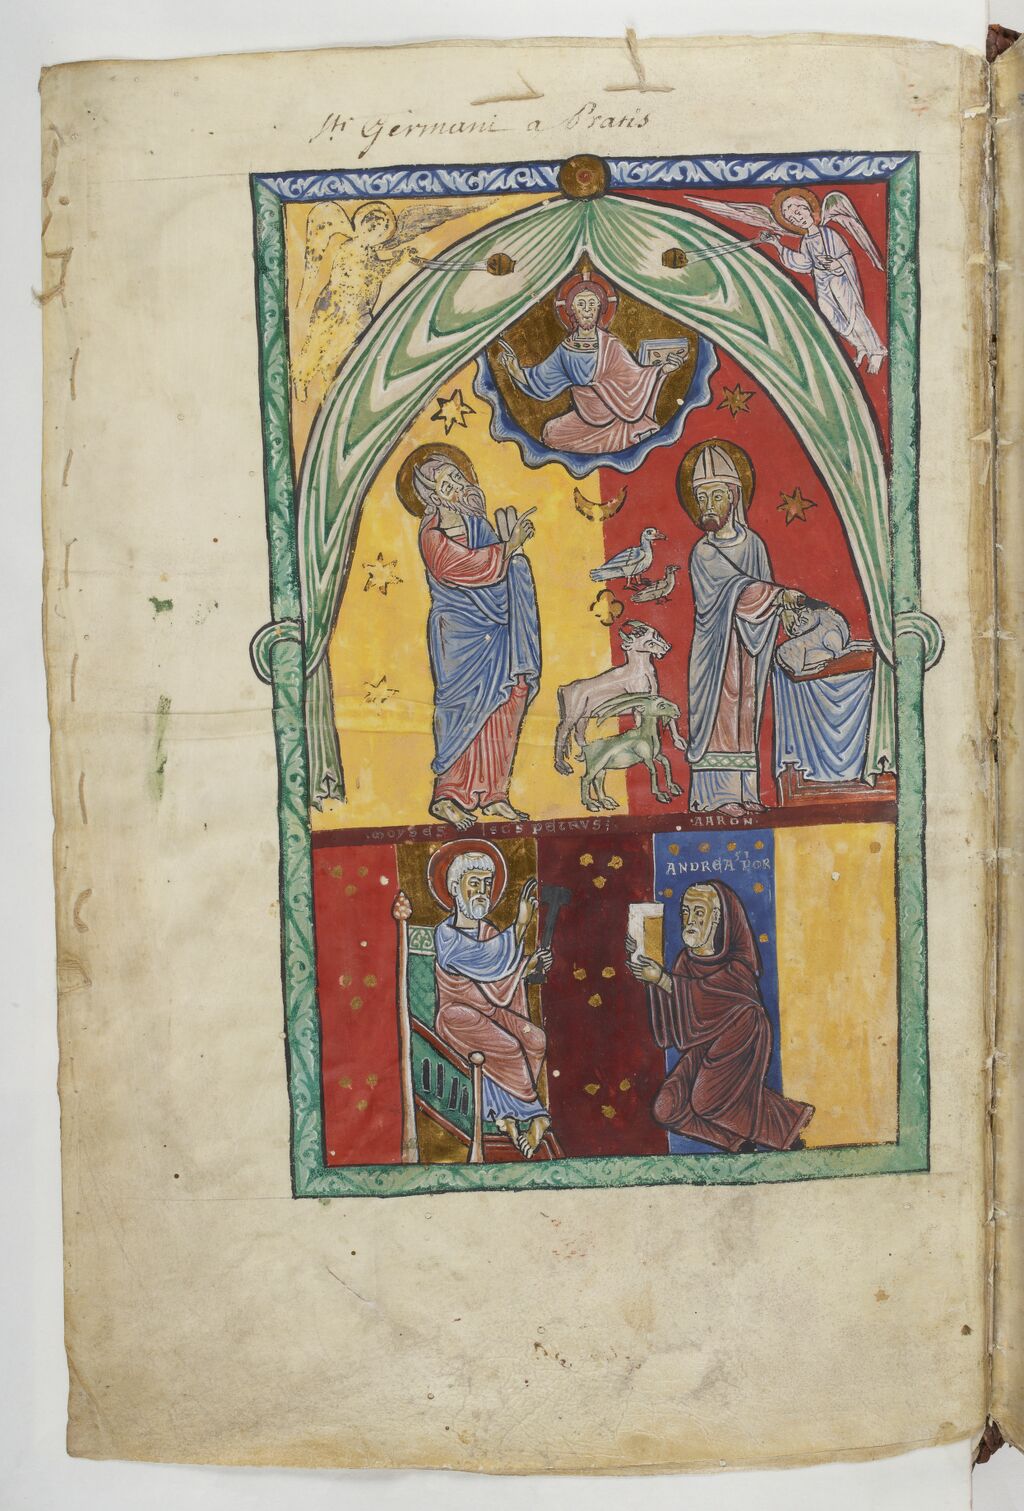 Sti Germani a Pratis
MOYSES
SCS PETRUS:
AARON.
ANDREAS POR